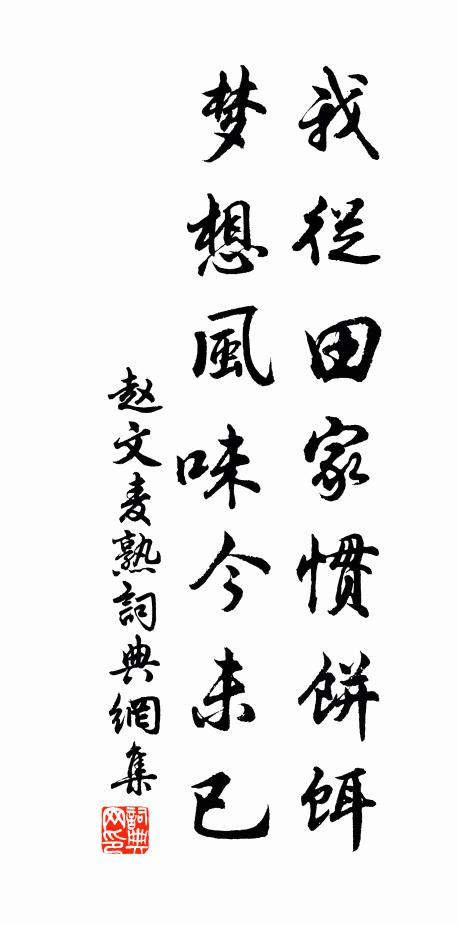 我從田家慣餅餌
梦想風味今未已
赵文麦熟詞典網集
詞典网印